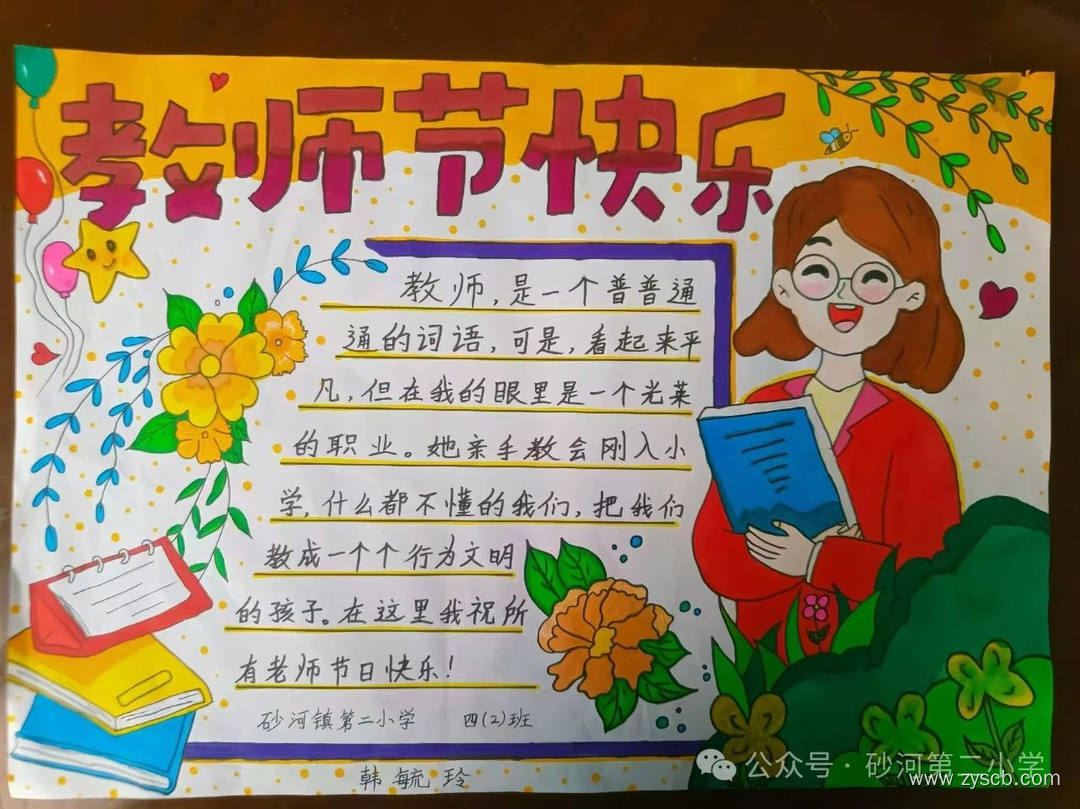 教师节快乐
教师,是一个普普通
通的词语,可是,看起来平
凡,但在我的眼里是一个光荣
的职业。她亲手教会刚入小
学,什么都不懂的我们,把我们
教成一个个行为文明
的孩子。在这里我祝所
有老师节日快乐!
砂河镇第二小学 四(2)班
韩毓玲
公众号·砂河第二小学
www.zyscb.com